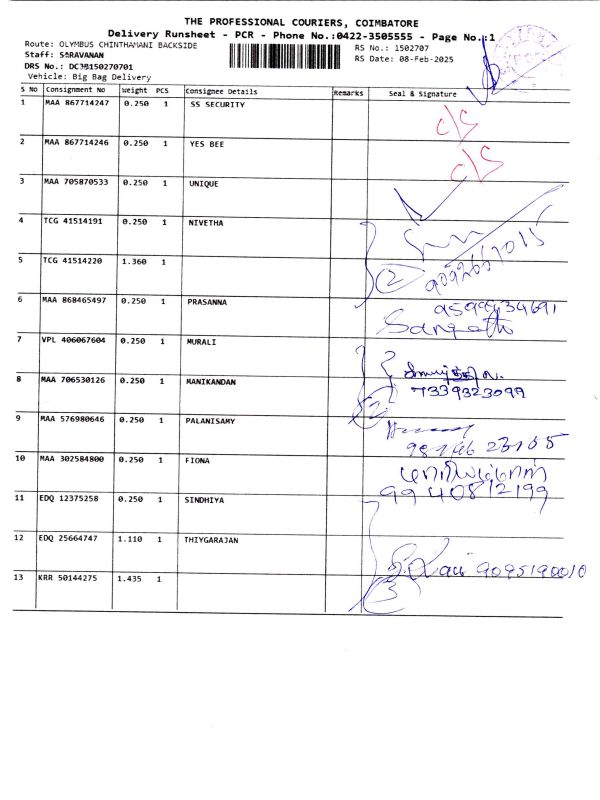 THE PROFESSIONAL COURIERS, COIMBATORE
Delivery Runsheet - PCR - Phone No.:0422-3505555 - Page No.:1
Route: OLYMBUS CHINTHAMANI BACKSIDE
RS No.: 1502707
Staff: SARAVANAN
RS Date: 08-Feb-2025
DRS No.: DC3B150270701
Vehicle: Big Bag Delivery
S No Consignment No Weight PCS Consignee Details Remarks Seal & Signature
1 MAA 867714247 0.250 1 SS SECURITY C/S
2 MAA 867714246 0.250 1 YES BEE C/S
3 MAA 705870533 0.250 1 UNIQUE
4 TCG 41514191 0.250 1 NIVETHA
5 TCG 41514220 1.360 1 2
6 MAA 868465497 0.250 1 PRASANNA
Sangeetha
7 VPL 406067604 0.250 1 MURALI
8 MAA 706530126 0.250 1 MANIKANDAN 7339323099
2
9 MAA 576980646 0.250 1 PALANISAMY
10 MAA 302584800 0.250 1 FIONA
99 40812199
11 EDQ 12375258 0.250 1 SINDHIYA
12 EDQ 25664747 1.110 1 THIYGARAJAN
9095190010
13 KRR 50144275 1.435 1 3